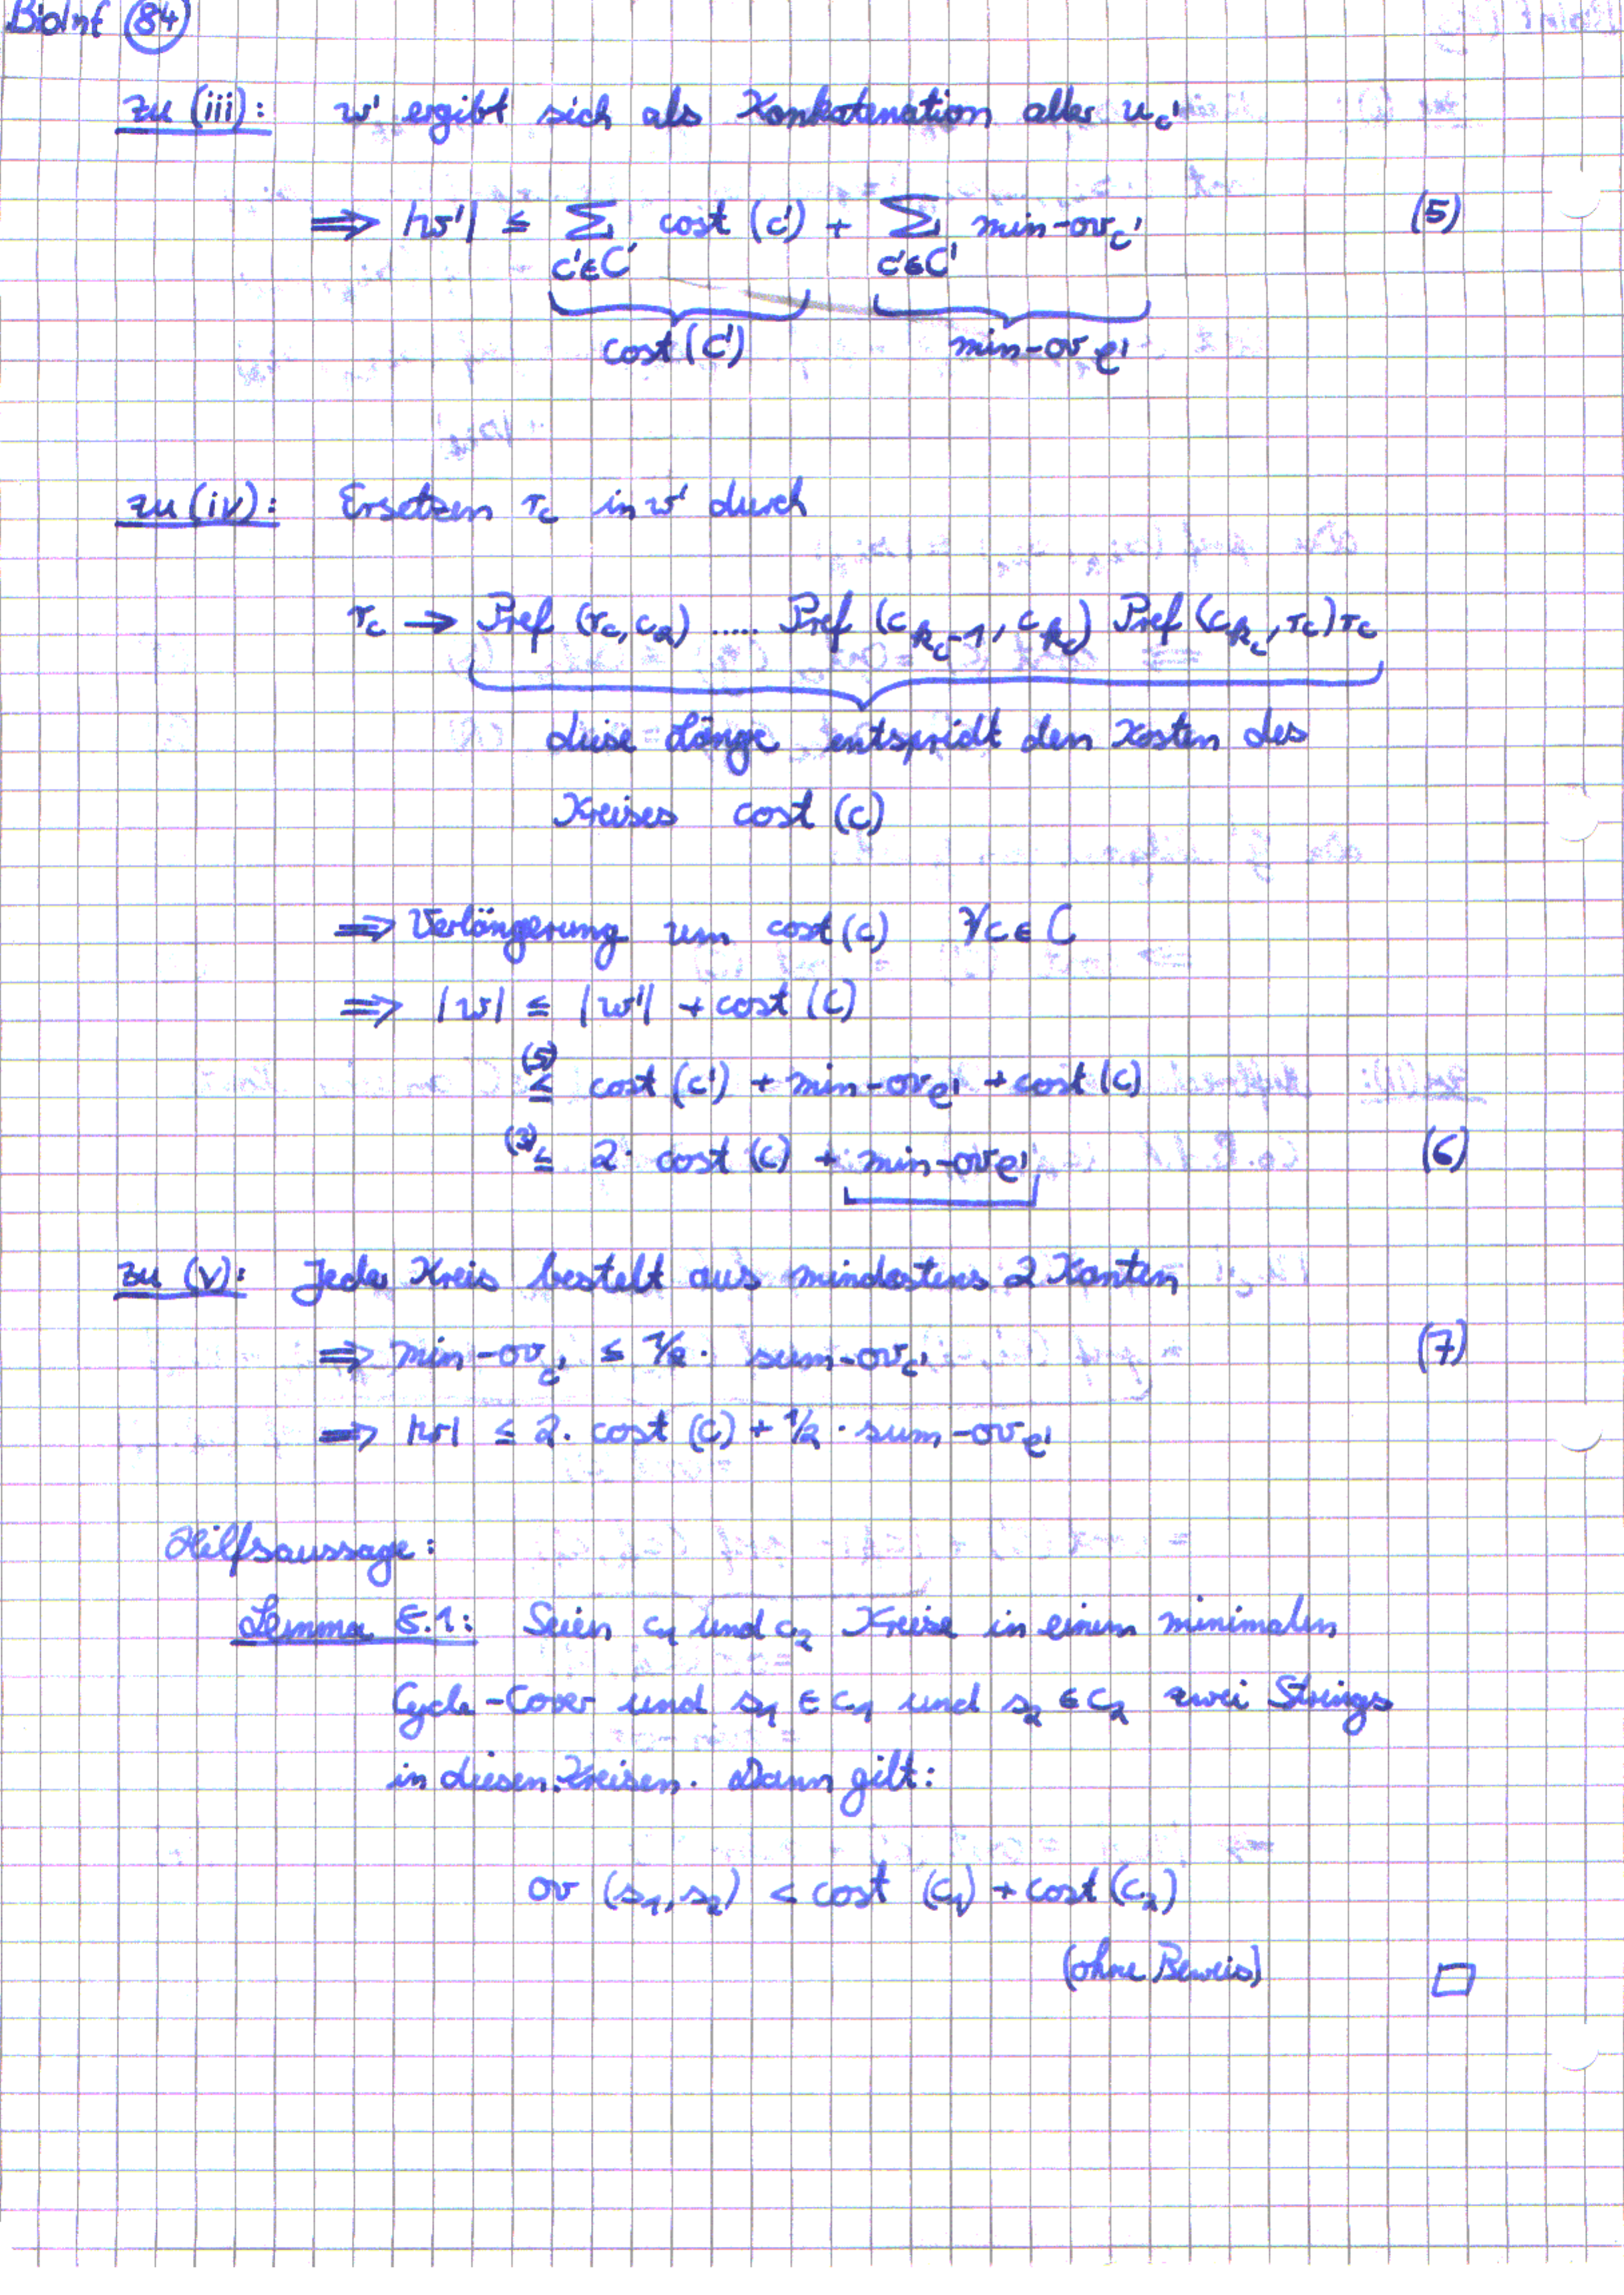 BioInf (84)
zu (iii): w' ergibt sich als Konkatenation aller u_c'
⟹ |w'| ≤ ∑ cost (c') + ∑ min-ov_c' (5)
c'∈C' c'∈C'
cost (C') min-ov_C'
zu (iv): Ersetzen r_c in w' durch
r_c → Pref (r_c, c_2) ..... Pref (c_k_c-1, c_k_c) Pref (c_k_c, r_c) r_c
diese Länge entspricht den Kosten des
Kreises cost (c)
⟹ Verlängerung um cost (c) ∀c ∈ C
⟹ |w| ≤ |w'| + cost (C)
(5) ≤ cost (C') + min-ov_C' + cost (C)
(3) ≤ 2 · cost (C) + min-ov_C' (6)
zu (v): Jeder Kreis besteht aus mindestens 2 Kanten
⟹ min-ov_c' ≤ 1/2 · sum-ov_c' (7)
⟹ |w| ≤ 2 · cost (C) + 1/2 · sum-ov_C'
Hilfsaussage:
Lemma 5.1: Seien c_1 und c_2 Kreise in einem minimalen
Cycle-Cover und s_1 ∈ c_1 und s_2 ∈ c_2 zwei Strings
in diesen Kreisen. Dann gilt:
ov (s_1, s_2) < cost (c_1) + cost (c_2)
(ohne Beweis) □